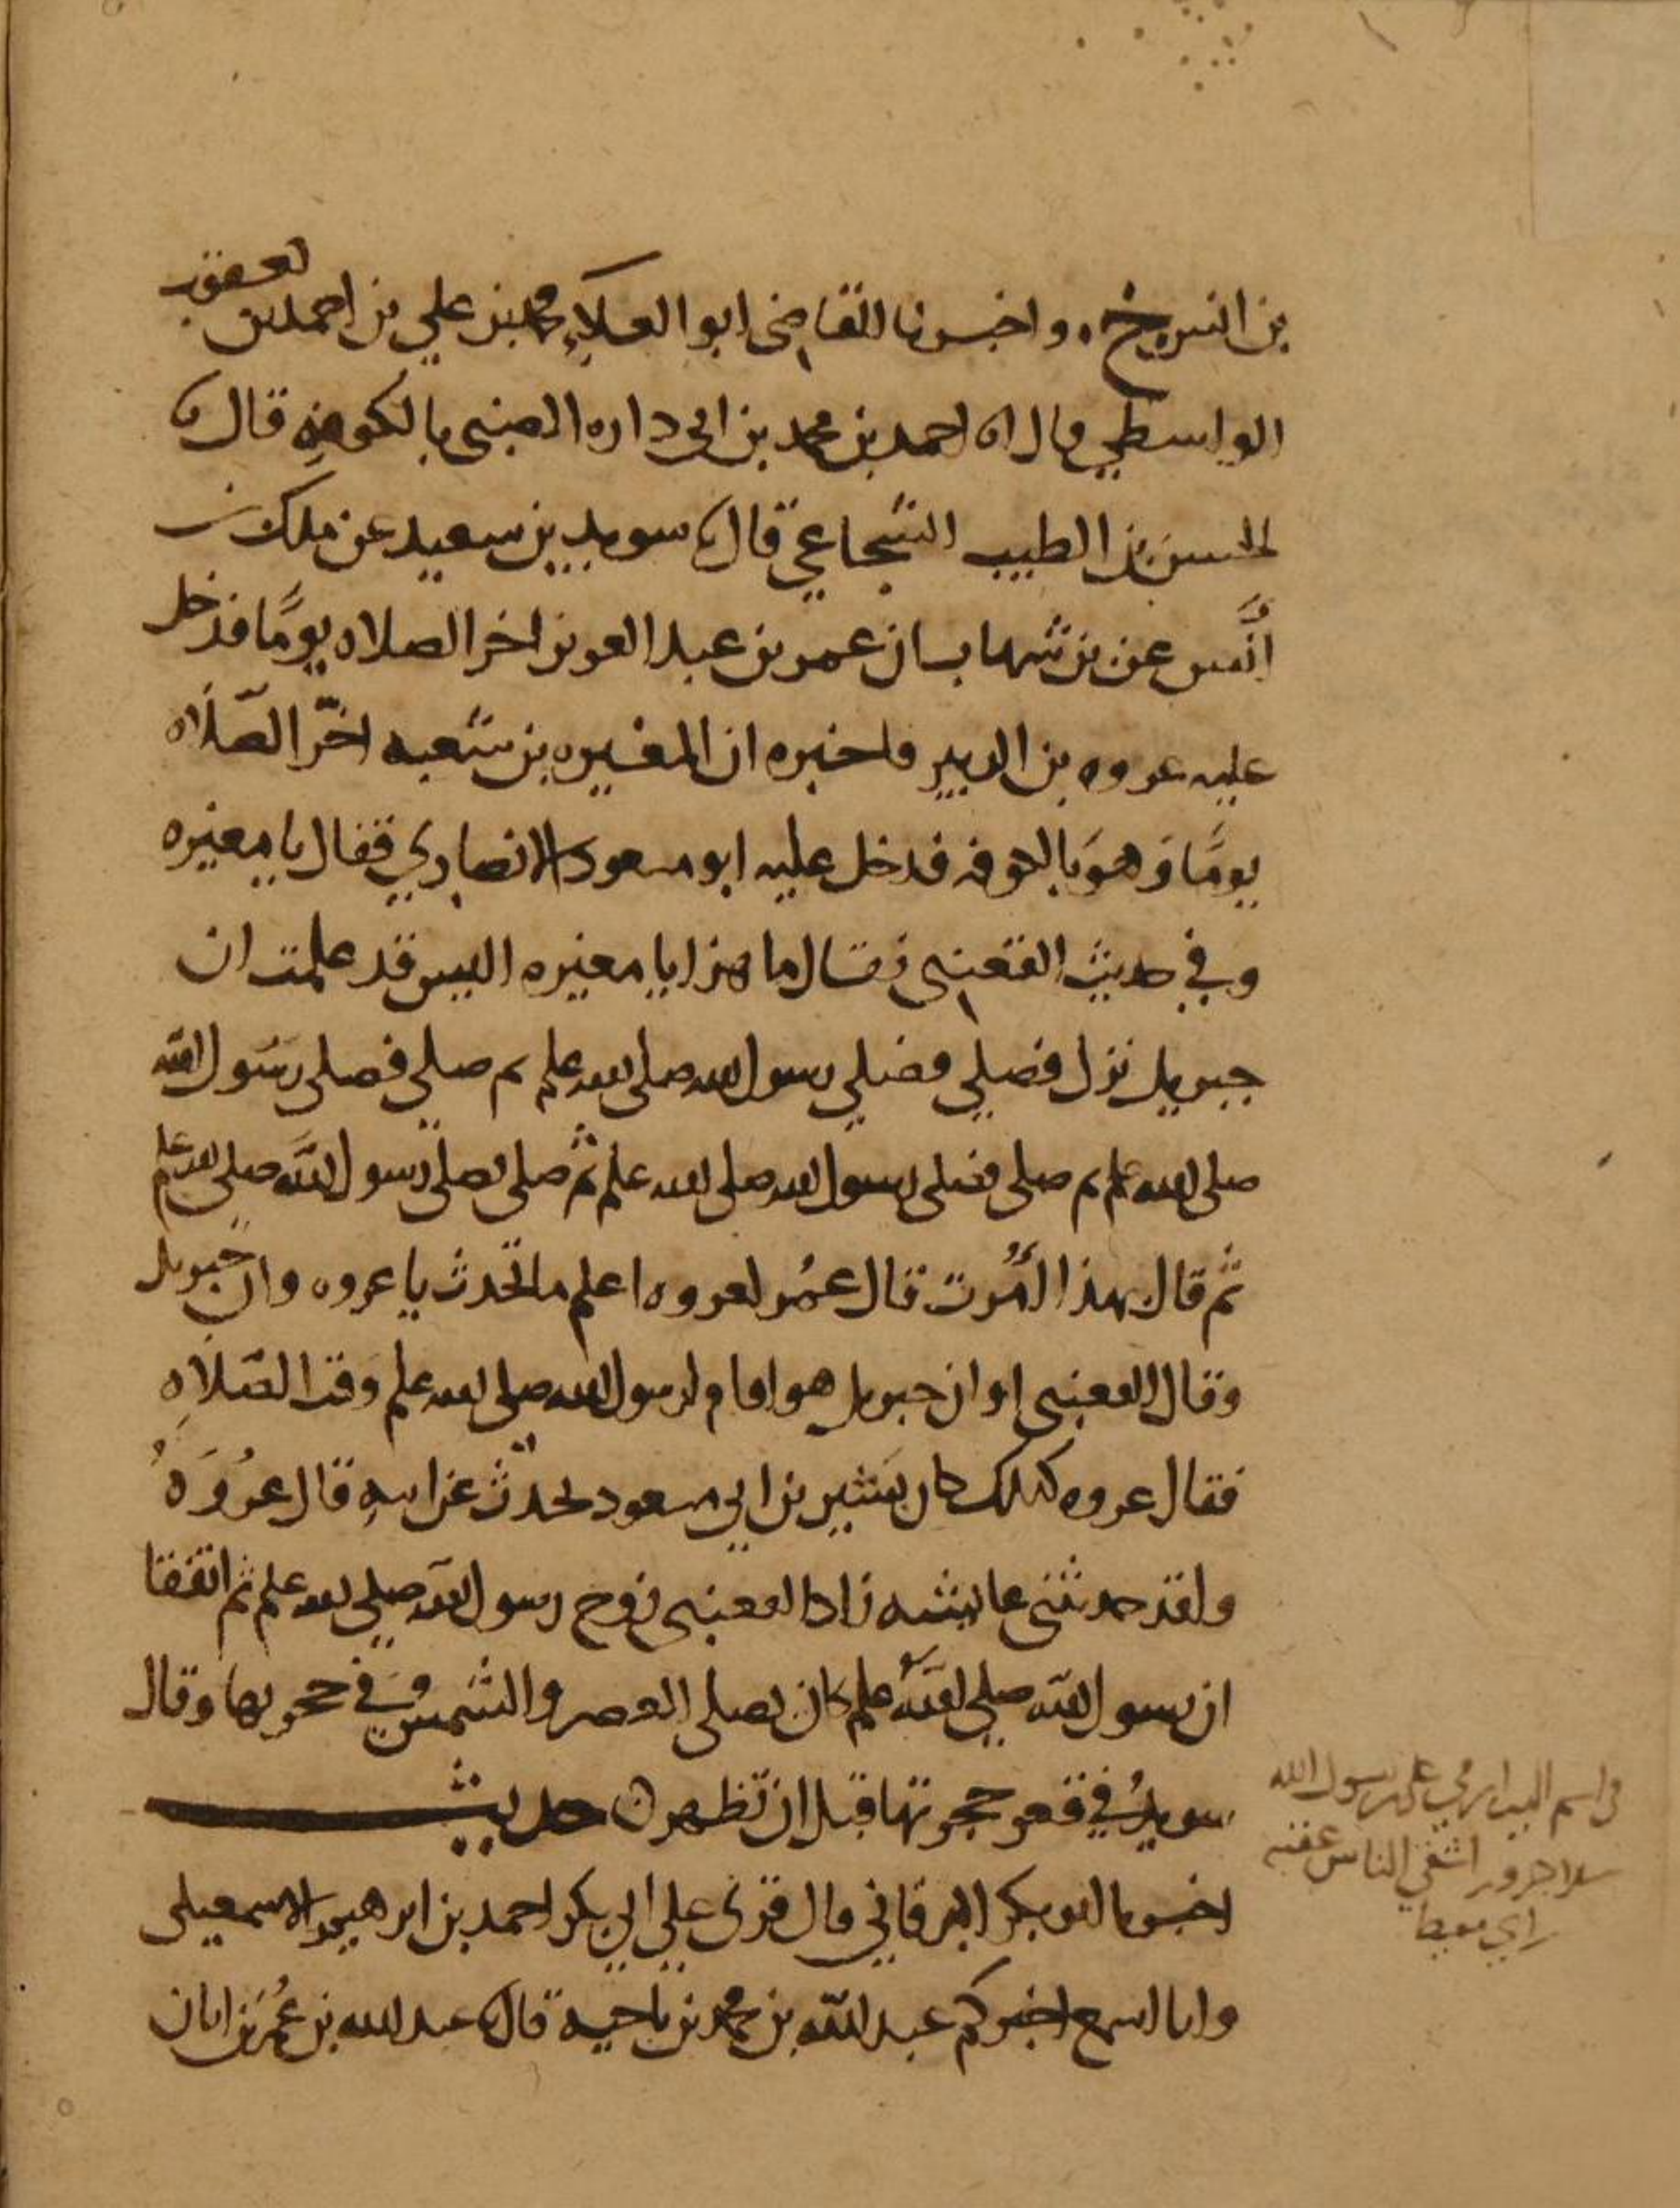 بن السرج، واخبرنا القاضي ابو العلاء محمد بن علي بن احمد بن يعقوب
الواسطي قال انا احمد بن محمد بن ابي داره الضبي بالكوفه قال نا
الحسن بن الطيب الشجاعي قال نا سويد بن سعيد عن ملك بن
انس عن بن شهاب ان عمر بن عبد العزيز اخر الصلاه يومًا فدخل
عليه عروه بن الزبير فاخبره ان المغيره بن شعبه اخّر الصّلاه
يومًا وهو بالكوفه فدخل عليه ابو مسعود الانصاري فقال يا مغيره
وفي حديث القعنبي فقال ما هذا يا مغيره اليس قد علمت ان
جبريل نزل فصلي فصلي رسول الله صلى الله علم ثم صلي فصلي رسول الله
صلى الله علم ثم صلى فصلى رسول الله صلى الله علم ثم صلى فصلى رسول الله صلى الله علم
ثم قال بهذا اُمرت قال عمر لعروه اعلم ما تحدث يا عروه وان جبريل
وقال القعنبي او ان جبريل هو اقام لرسول الله صلى الله علم وقت الصّلاه
فقال عروه كذلك كان بشير بن ابي مسعود يحدث عن ابيه قال عروه
ولقد حدثتني عايشه زاد القعنبي زوج رسول الله صلى الله علم ثم اتفقا
ان رسول الله صلى الله علم كان يصلي العصر والشمس في حجرتها وقال
سويد في قعر حجرتها قبل ان تظهر حديث
اخبرنا ابو بكر البرقاني قال قرى علي ابي بكر احمد بن ابرهيم الاسمعيلى
وانا اسمع اخبركم عبد الله بن محمد بن ناجيه قال نا عبد الله بن عمر بن ابان
على رسول الله
سلا جزور اشقي الناس عقبه
معيط